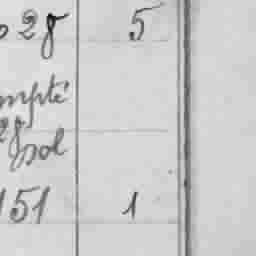 28 5
mpté
28
sol
151 1